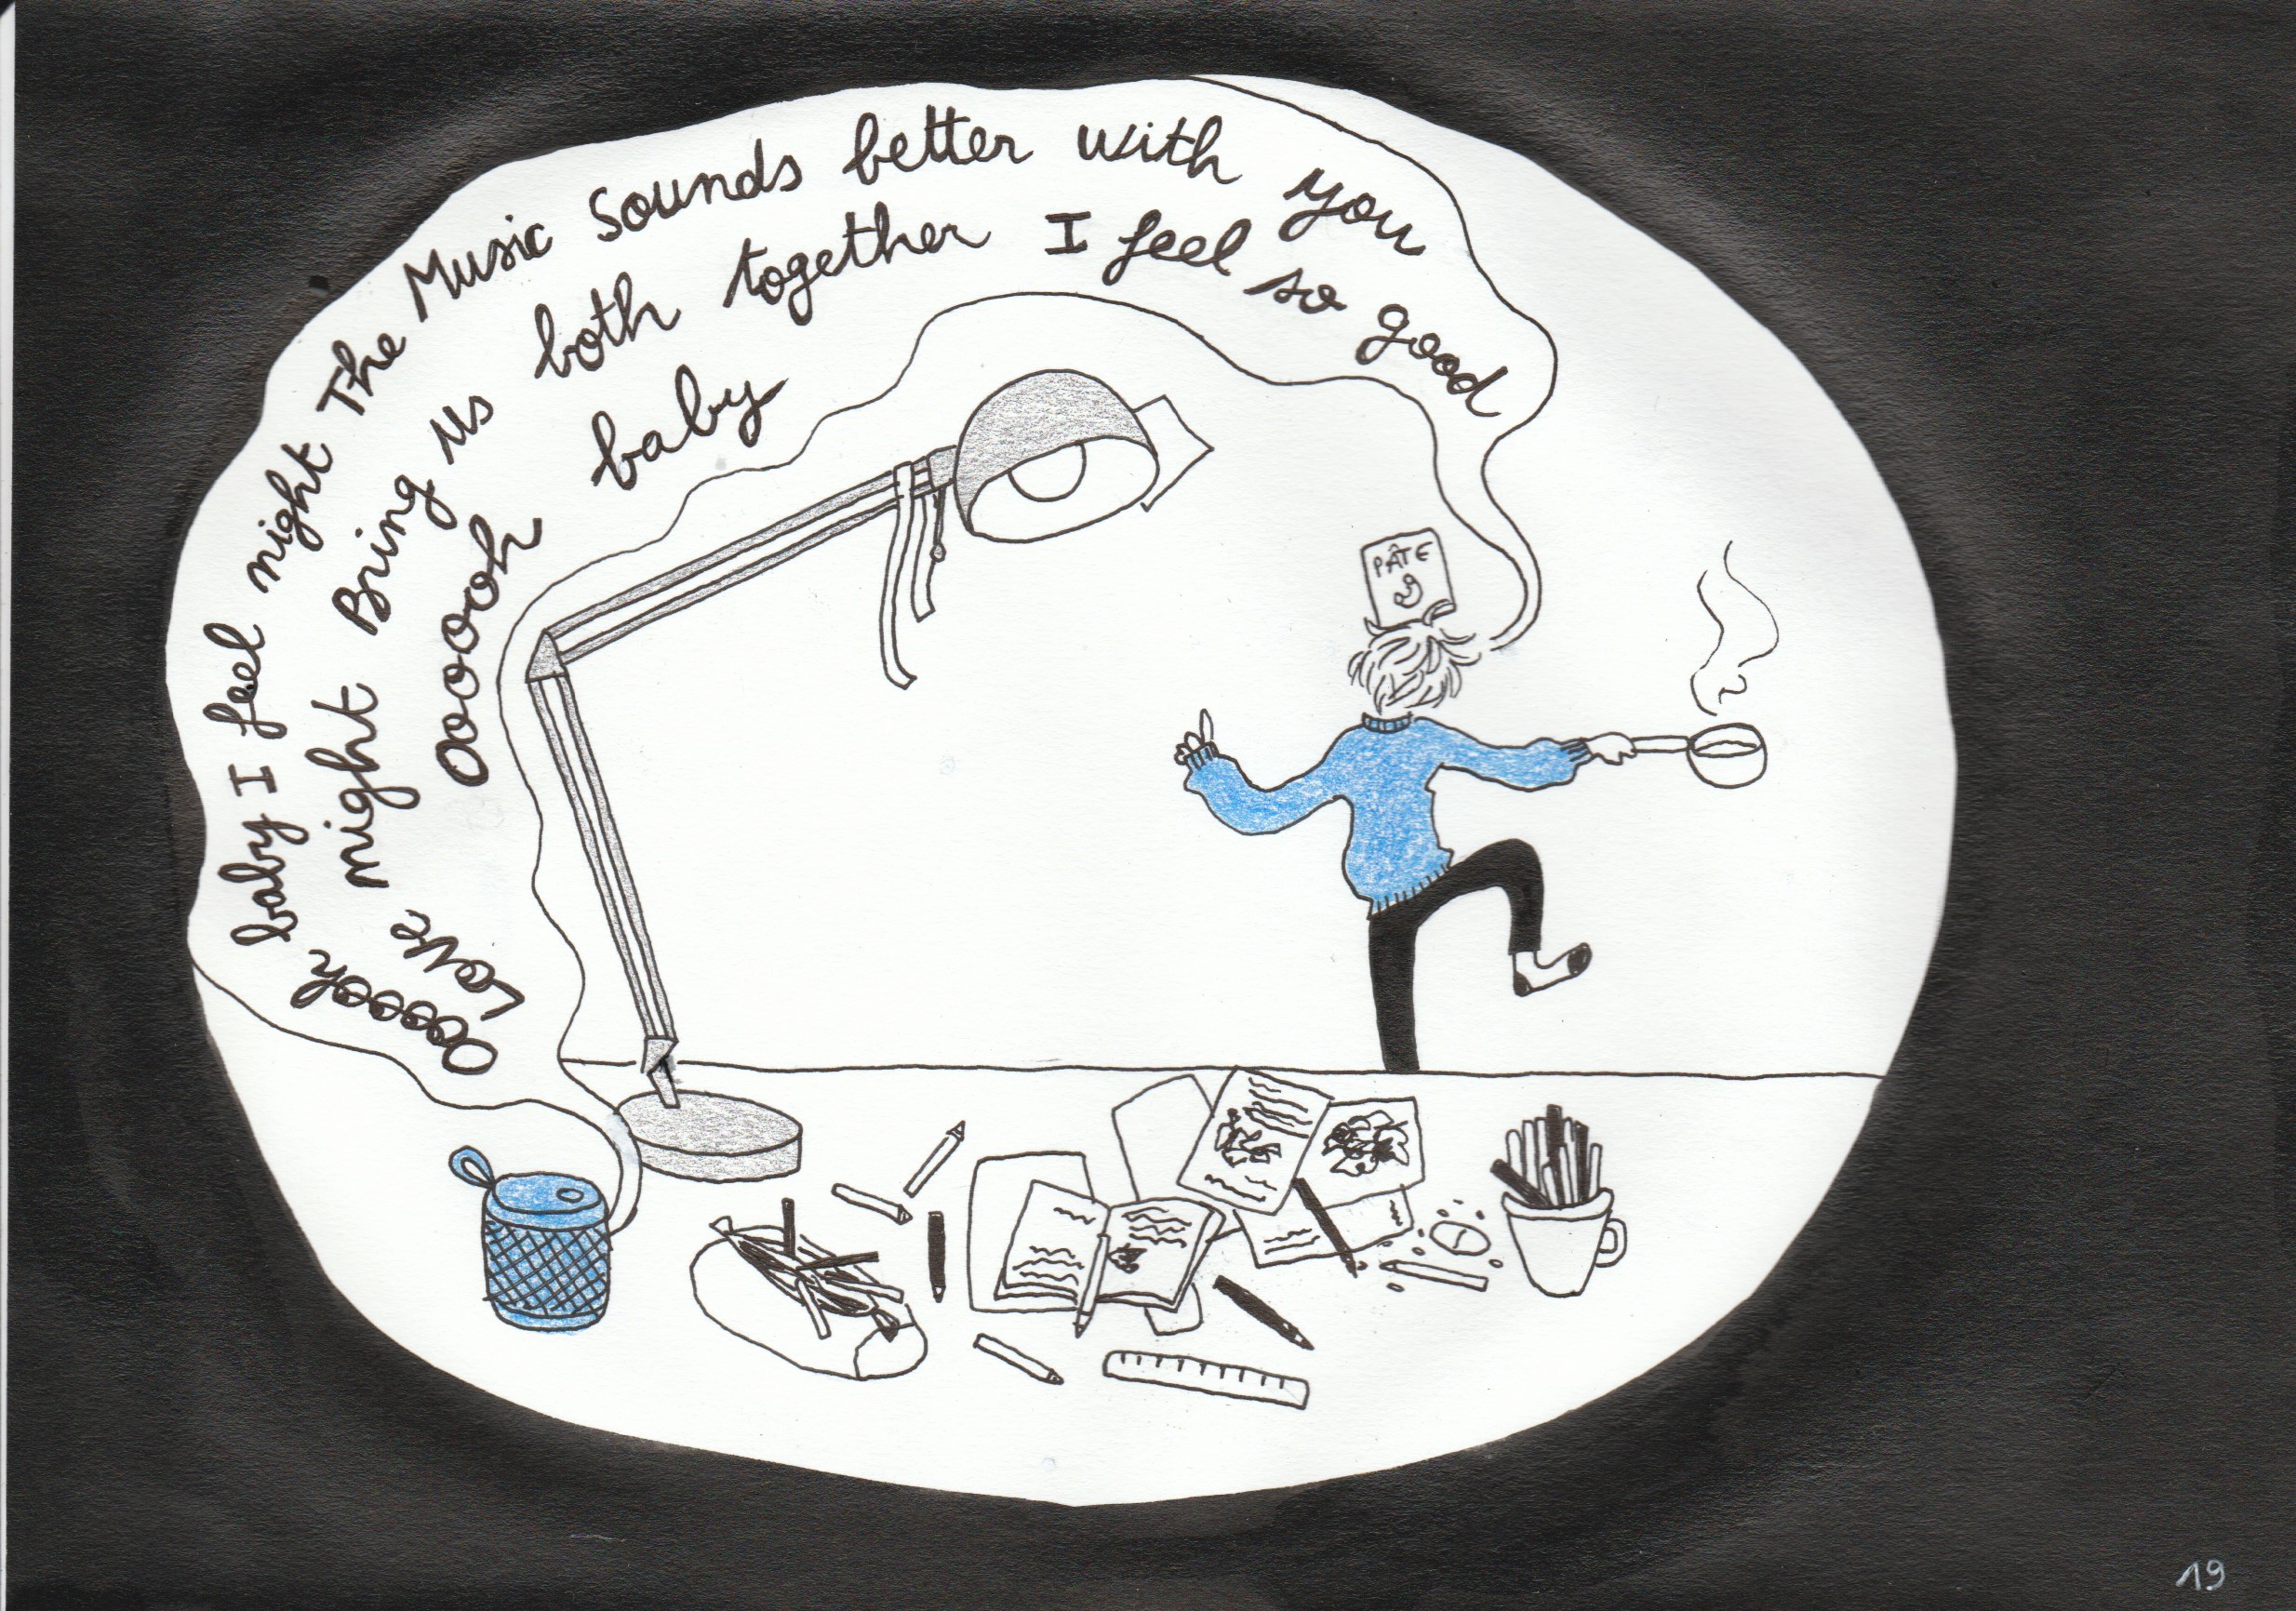 Oooooh baby I feel right The Music Sounds better with you
Love might Bring us both together I feel so good
Oooooh baby
PÂTE
19